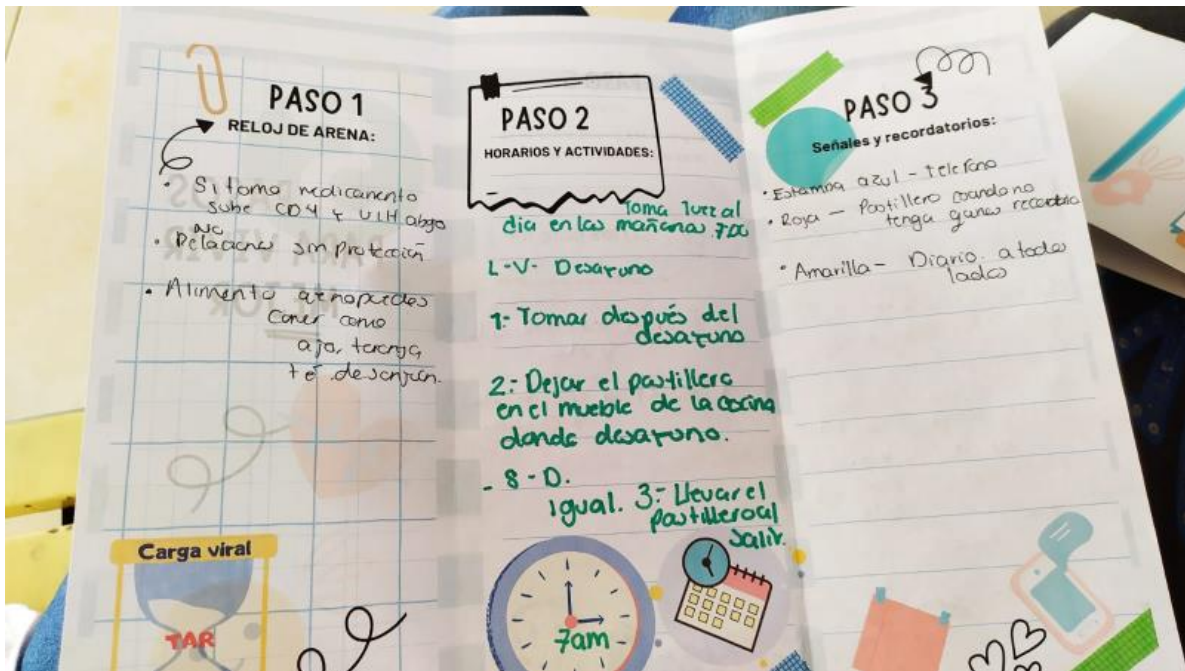 PASO 1
RELOJ DE ARENA:
• Si tomo medicamento
sube CD4 y VIH abajo
No
• Relaciones sin protección
• Alimento q no puedes
comer como
ajo, toronja,
té de sanjuan.
Carga viral
TAR
PASO 2
HORARIOS Y ACTIVIDADES:
Toma 1 vez al
día en las mañanas 7:00
L-V- Desayuno
1:- Tomar después del
desayuno
2:- Dejar el pastillero
en el mueble de la cocina
donde desayuno.
- S-D.
igual. 3:- Llevar el
pastillero al
salir.
7am
PASO 3
Señales y recordatorios:
• Estampa azul - telefono
• Roja - Pastillero cuando no
tenga ganas
• Amarilla - Diario. a todos
lados